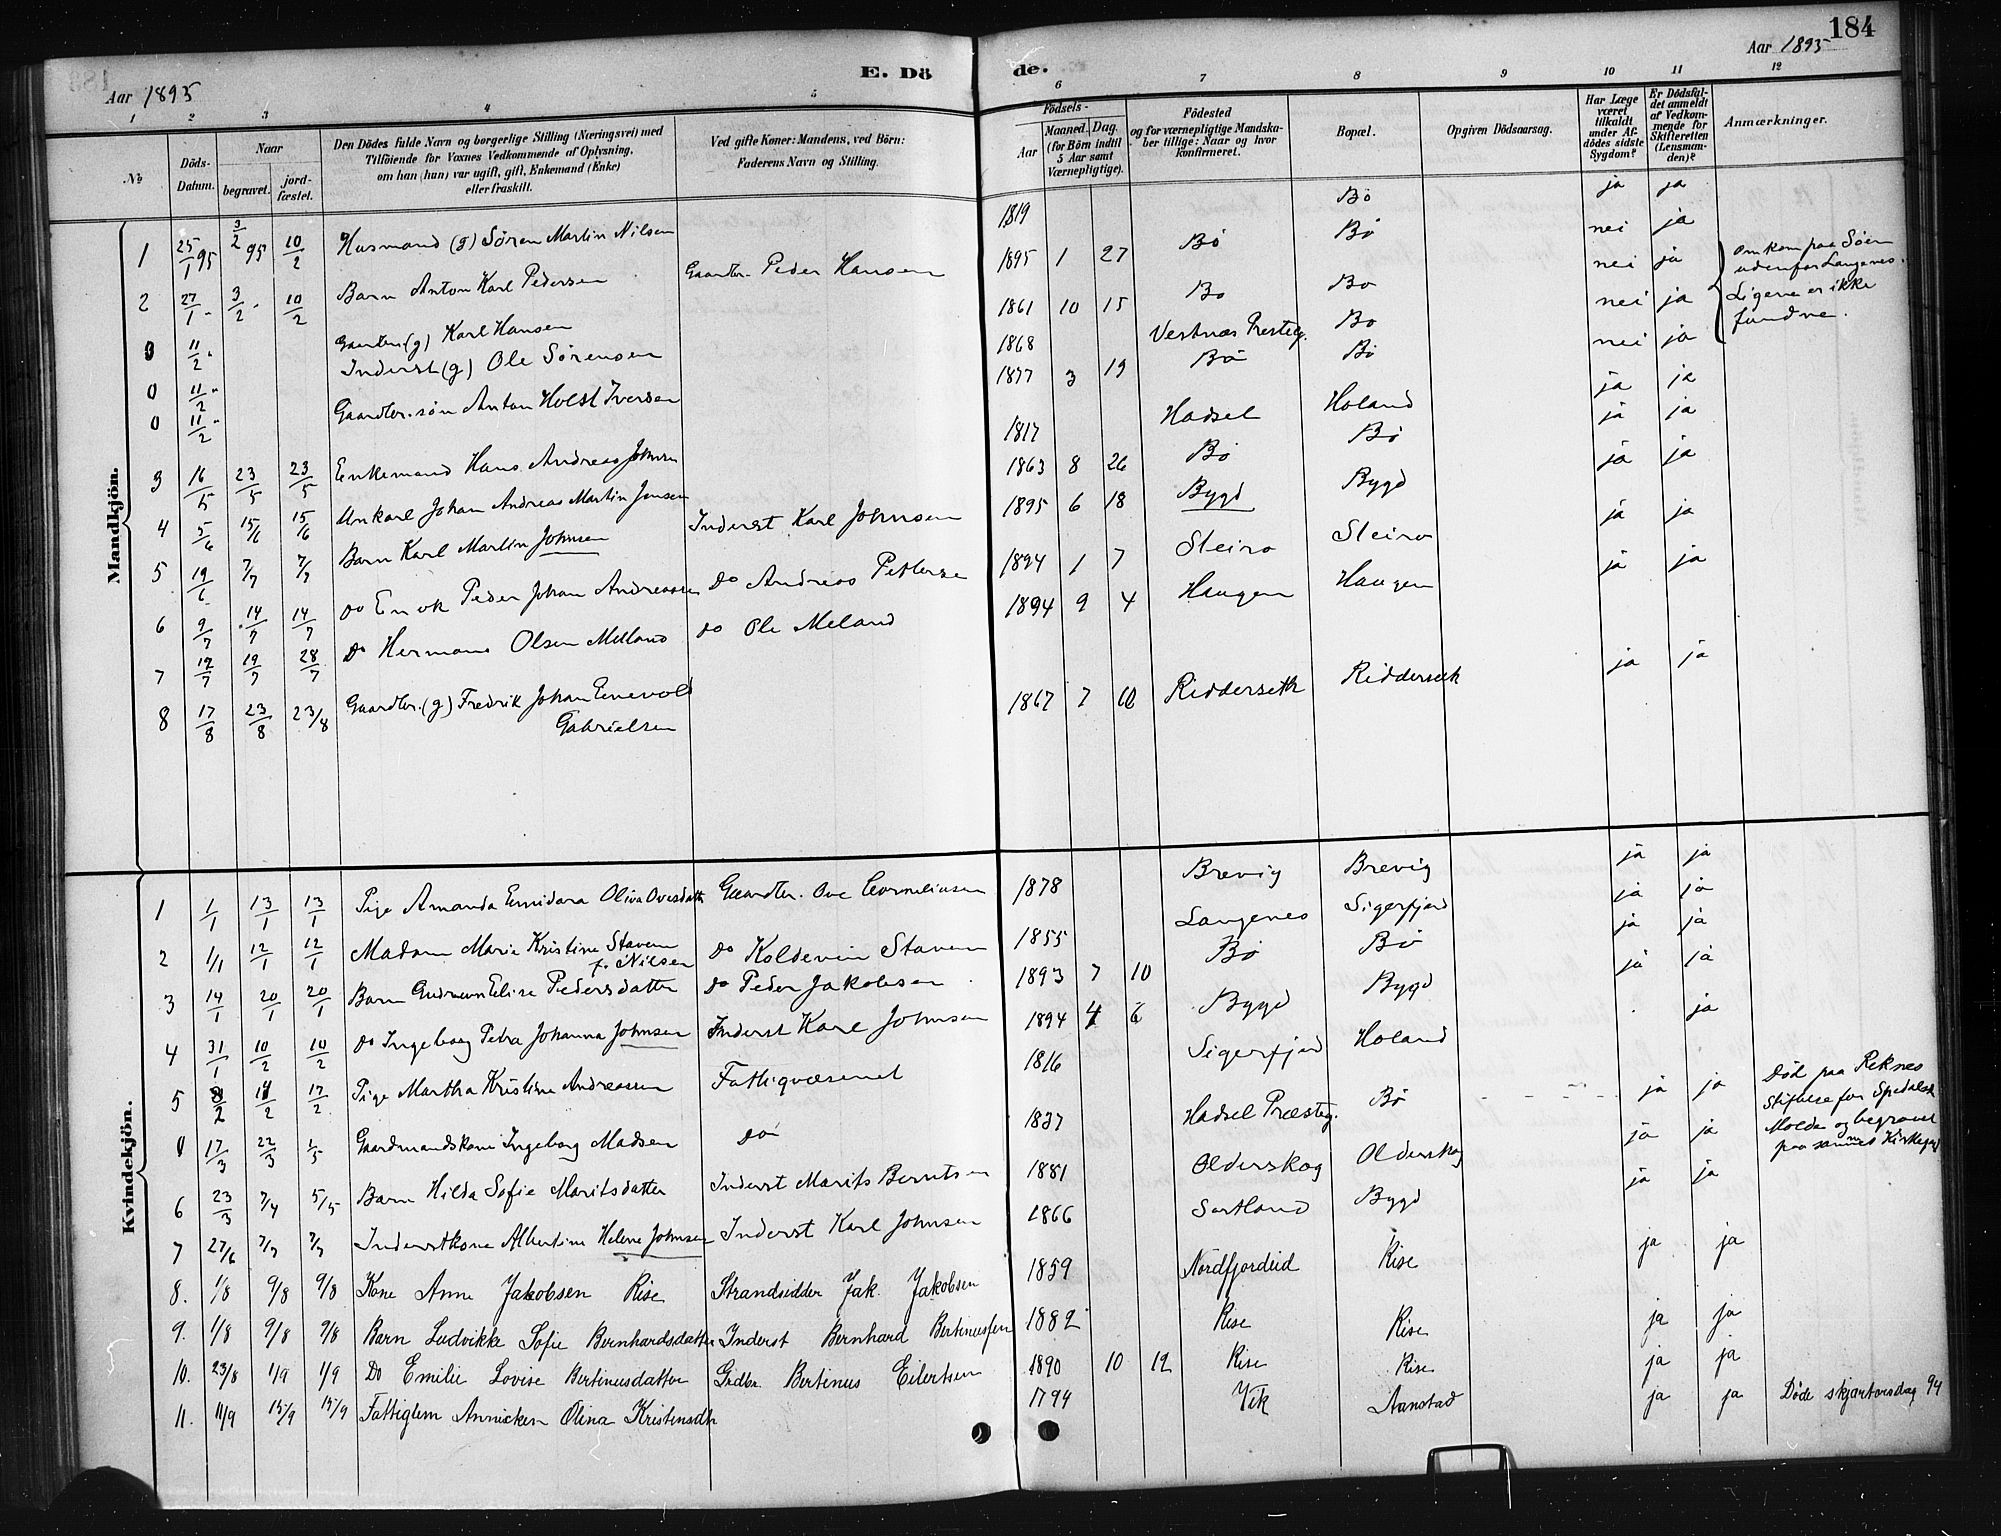 184
Aar 1895
E. Dö de.
Aar 1895
1 2 3 4 5 6 7 8 9 10 11 12
No
Döds-Datum.
Naar
begravet.
jord-fæstet.
Den Dödes fulde Navn og borgerlige Stilling (Næringsvei) med Tilföiende for Voxnes Vedkommende af Oplysning, om han (hun) var ugift, gift, Enkemand (Enke) eller fraskilt.
Ved gifte Koner: Mandens, ved Börn: Faderens Navn og Stilling.
Födsels-
Aar
Maaned. Dag.
(for Börn indtil 5 Aar samt Værnepligtige).
Födested og for værnepligtige Mandskaber tillige: Naar og hvor konfirmeret.
Bopæl.
Opgiven Dödsaarsag.
Har Læge været tilkaldt under Afdödes sidste Sygdom?
Er Dödsfaldet anmeldt af Vedkommende for Skifteretten (Lensmanden)?
Anmærkninger.
Mandkjön.
1 25/1 95 3/2 95 10/2 Husmand (g) Sören Martin Nilsen 1819 Bö ja ja
2 27/1 3/2 10/2 Barn Anton Karl Pedersen Gaardbr. Peder Hansen 1895 1 27 Bö Bö nei ja
0 11/2 Gaardbr. (g) Karl Hansen 1861 10 15 Bö Bö nei ja
0 11/2 Inderst (g) Ole Sörensen 1868 Vestnæs Presteg. Bö nei ja
0 11/2 Gaardbr. sön Anton Holst Iversen 1877 3 19 Bö Bö nei ja
Omkom paa Söen udenfor Langenes. Ligene er ikke fundne.
3 16/5 23/5 23/5 Enkemand Hans Andreas Johnsen 1817 Hadsel Holand ja ja
4 5/6 15/6 15/6 Unkarl Johan Andreas Martin Jensen 1863 8 26 Bö Bö ja ja
5 19/6 7/7 7/7 Barn Karl Martin Johnsen Inderst Karl Johnsen 1895 6 18 Bygd Bygd ja ja
6 9/7 14/7 14/7 Do Enok Peder Johan Andreassen Do Andreas Petterse 1894 1 7 Steiro Steiro ja ja
7 12/7 19/7 28/7 Do Hermann Olsen Melland Do Ole Meland 1894 9 4 Haugen Haugen ja ja
8 17/8 23/8 23/8 Gaardbr. (g) Fredrik Johan Enevold Gabrielsen 1867 7 10 Ridderseth Ridderseth ja ja
Kvindekjön.
1 1/1 13/1 13/1 Pige Amanda Emidora Oliva Ovesdatter Gaardbr. Ove Corneliusen 1878 Brevig Brevig ja ja
2 1/1 12/1 12/1 Madam Marie Kristine Stavem f. Nilsen Do Koldevin Stavem 1855 Langenes Sigerfjord ja ja
3 14/1 20/1 20/1 Barn Gudrun Elise Pedersdatter Do Peder Jakobsen 1893 7 10 Bö Bö ja ja
4 31/1 10/2 10/2 Do Ingeborg Petra Johanna Johnsen Inderst Karl Johnsen 1894 4 6 Bygd Bygd ja ja
5 8/2 17/2 17/2 Pige Martha Kristine Andreassen Fattigvæsenet 1816 Sigerfjord Holand ja
0 17/3 22/3 1/5 Gaardmandskone Ingeborg Madsen Do 1837 Hadsel Præsteg. Bö ja ja Död paa Reknes Stiftelse for Spedalsk Molde og begravet paa sammes Kirkegaard
6 23/3 7/4 5/5 Barn Hilda Sofie Moritsdatter Inderst Morits Berntsen 1881 Olderskog Olderskog ja ja
7 27/6 7/7 7/7 Inderstkone Albertine Helene Johnsen Inderst Karl Johnsen 1866 Sortland Bygd ja ja
8. 1/8 9/8 9/8 Kone Anne Jakobsen Rise Strandsidder Jak. Jakobsen 1859 Nordfjordeid Rise ja ja
9. 1/8 9/8 9/8 Barn Ludvikke Sofie Bernhardsdatter Inderst Bernhard Bertinussen 1882 Rise Rise ja ja
10. 23/8 1/9 1/9 Do Emilie Lovise Bertinusdatter Grdbr. Bertinus Eilertsen 1890 10 12 Rise Rise ja ja
11. 11/9 15/9 15/9 Fattiglem Annicken Olina Kristensdtr 1794 Vik Aanstad ja ja Döde skjærtorsdag 94